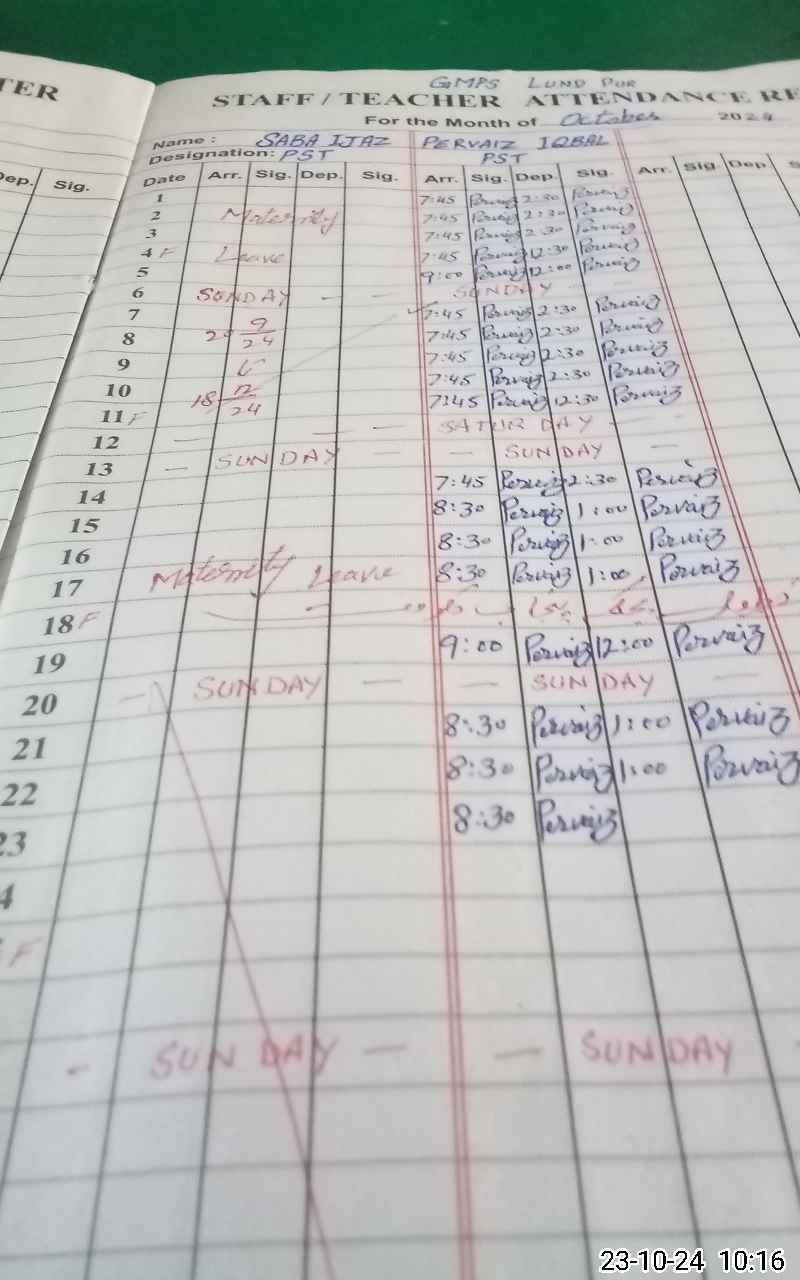 GMPS LUND PUR
TER STAFF / TEACHER ATTENDANCE RE
For the Month of October 2024
Name : SABA IJAZ PERVAIZ IQBAL
Designation: PST PST
Dep. Sig. Date Arr. Sig. Dep. Sig. Arr. Sig. Dep. Sig. Arr. Sig. Dep. S
1 7:45 Pervaiz 2:30 Pervaiz
2 Maternity 7:45 Pervaiz 2:30 Pervaiz
3 7:45 Pervaiz 2:30 Pervaiz
4 F Leave 7:45 Pervaiz 12:30 Pervaiz
5 9:00 Pervaiz 12:00 Pervaiz
6 SUNDAY - - SUNDAY -
7 7:45 Pervaiz 2:30 Pervaiz
8 9/24 7:45 Pervaiz 2:30 Pervaiz
9 7:45 Pervaiz 2:30 Pervaiz
10 18 12/24 7:45 Pervaiz 2:30 Pervaiz
11 F 7:45 Pervaiz 12:30 Pervaiz
12 - - - SATURDAY -
13 - SUNDAY - - SUNDAY -
14 7:45 Pervaiz 2:30 Pervaiz
15 8:30 Pervaiz 1:00 Pervaiz
16 8:30 Pervaiz 1:00 Pervaiz
17 Maternity Leave 8:30 Pervaiz 1:00 Pervaiz
18 F
19 9:00 Pervaiz 12:00 Pervaiz
20 - SUNDAY - - SUNDAY -
21 8:30 Pervaiz 1:00 Pervaiz
22 8:30 Pervaiz 1:00 Pervaiz
23 8:30 Pervaiz
4
F
- SUNDAY - - SUNDAY -
23-10-24 10:16